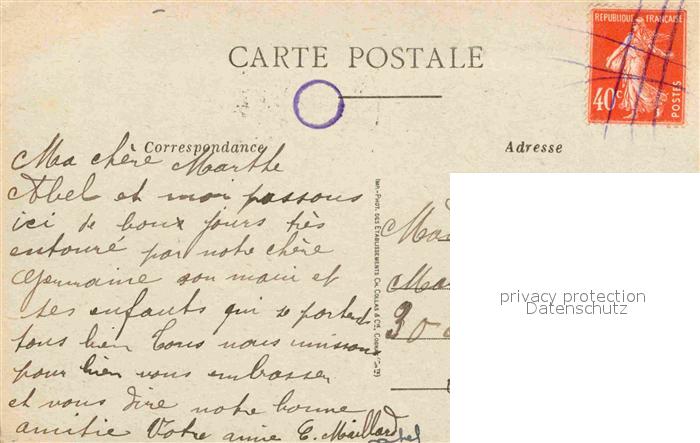 CARTE POSTALE
RÉPUBLIQUE FRANÇAISE
40c
POSTES
Correspondance
Adresse
Ma chère Marthe
Abel et moi passons
ici de bons jours très
entouré par notre chère
Germaine son mari et
ses enfants qui se portent
tous bien Tous nous unissons
pour bien vous embrasser
et vous dire notre bonne
amitié Votre amie E. Maillard
Abel
IMP.-PHOT. DES ÉTABLISSEMENTS CH. COLLAS & Cie, COGNAC
Mad
Ma
30
privacy protection
Datenschutz